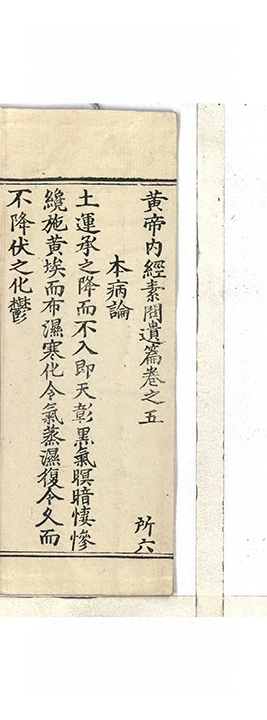 黃帝內經素問遺篇卷之五 所六
本病論
土運承之降而不入即天彰黑氣暝暗悽慘
纔施黃埃而布濕寒化令氣蒸濕復令久而
不降伏之化鬱